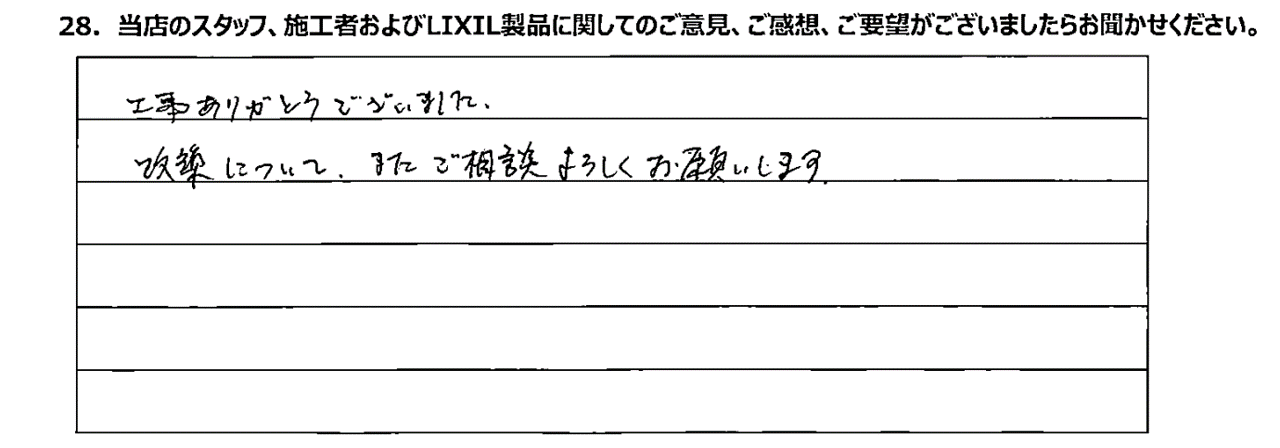 28. 当店のスタッフ、施工者およびLIXIL製品に関してのご意見、ご感想、ご要望がございましたらお聞かせください。
工事ありがとうございました.
改築について、またご相談よろしくお願いします.